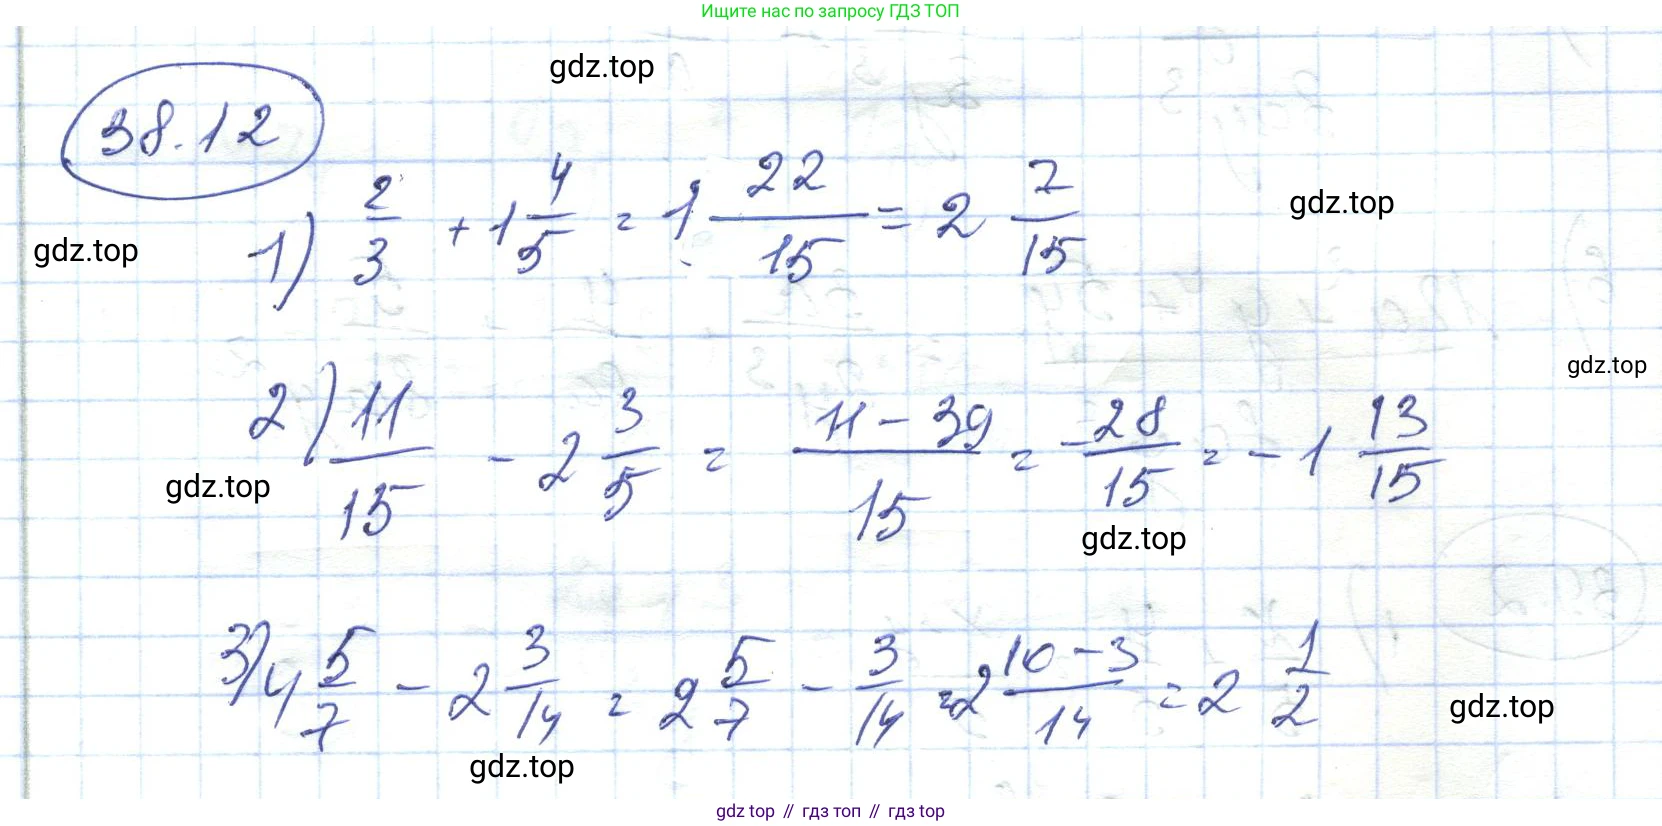 Ищите нас по запросу ГДЗ ТОП
gdz.top
38.12
gdz.top
gdz.top
1) 2/3 + 1 4/5 = 1 22/15 = 2 7/15
gdz.top
2) 11/15 - 2 3/5 = 11 - 39/15 = -28/15 = -1 13/15
gdz.top
gdz.top
3) 4 5/7 - 2 3/14 = 2 5/7 - 3/14 = 2 10-3/14 = 2 1/2
gdz.top
gdz.top
gdz top // гдз топ // гдз top